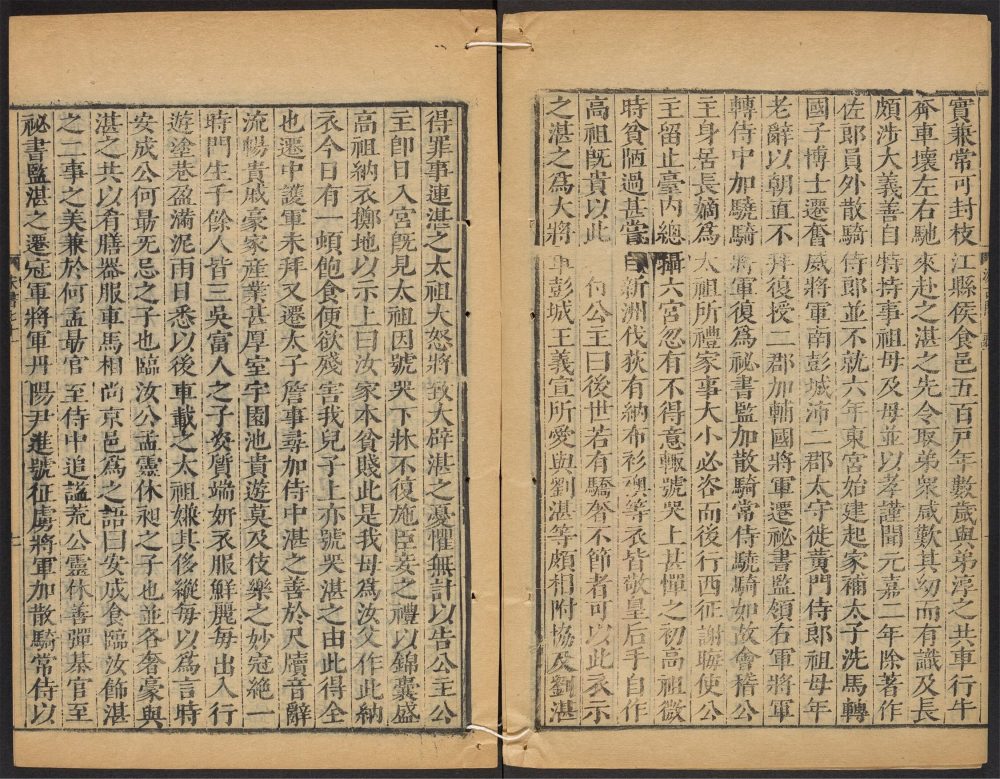 實兼常可封枝江縣侯食邑五百戸年數歲與弟淳之共車行牛
奔車壞左右馳來赴之湛之先令取弟衆咸歎其幼而有識及長
頗涉大義善自特持事祖母及母並以孝謹聞元嘉二年除著作
佐郎員外散騎侍郎並不就六年東宮始建起家補太子洗馬轉
國子博士遷奮威將軍南彭城沛二郡太守徙黃門侍郎祖母年
老辭以朝直不拜復授二郡加輔國將軍遷祕書監領右軍將軍
轉侍中加驍騎將軍復爲祕書監加散騎常侍驍騎如故會稽公
主身居長嫡爲太祖所禮家事大小必咨而後行西征謝晦使公
主留止臺內總攝六宮忽有不得意輙號哭上甚憚之初高祖微
時貧陋過甚嘗自新洲伐荻有納布衫襖等衣皆敬皇后手自作
高祖旣貴以此付公主曰後世若有驕奢不節者可以此衣示
之湛之爲大將軍彭城王義宣所愛與劉湛等頗相附協及劉湛
得罪事連湛之太祖大怒將致大辟湛之憂懼無計以告公主公
主卽日入宮旣見太祖因號哭下牀不復施臣妾之禮以錦囊盛
高祖納衣擲地以示上曰汝家本貧賤此是我母爲汝父作此納
衣今日有一頓飽食便欲殘害我兒子上亦號哭湛之由此得全
也遷中護軍未拜又遷太子詹事尋加侍中湛之善於尺牘音辭
流暢貴戚豪家產業甚厚室宇園池貴遊莫及伎樂之妙冠絶一
時門生千餘人皆三吳富人之子姿質端妍衣服鮮麗每出入行
遊塗巷盈滿泥雨日悉以後車載之太祖嫌其侈縱每以爲言時
安成公何勗无忌之子也臨汝公孟靈休昶之子也並各奢豪與
湛之共以肴膳器服車馬相尚京邑爲之語曰安成食臨汝飾湛
之二事之美兼於何孟勗官至侍中追諡荒公靈休善彈棊官至
祕書監湛之遷冠軍將軍丹陽尹進號征虜將軍加散騎常侍以